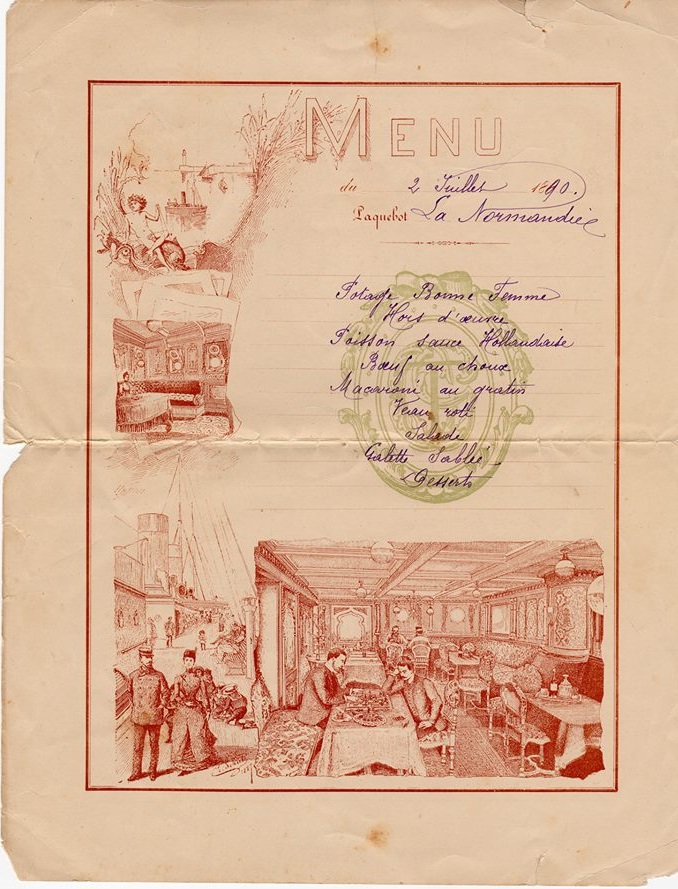 MENU
du 2 Juillet 1890.
Paquebot La Normandie
Potage Bonne Femme
Hors d'œuvre
Poisson sauce Hollandaise
Bœuf au choux
Macaroni au gratin
Veau roti
Salade
Galette Sablée
Desserts